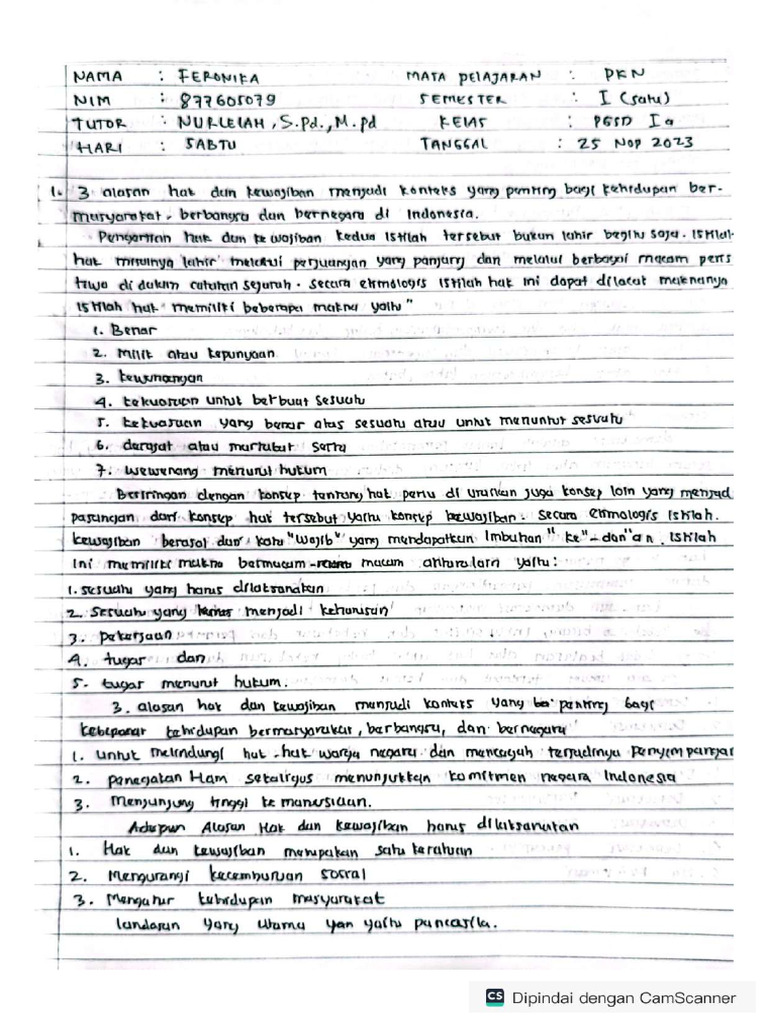 NAMA : FERONIKA MATA PELAJARAN : PKN
NIM : 877605079 SEMESTER : I (satu)
TUTOR : NURLELAH, S.Pd., M.pd KELAS : PGSD Ia
HARI : SABTU TANGGAL : 25 NOP 2023
1. 3 alasan hak dan kewajiban menjadi konteks yang penting bagi kehidupan ber-
masyarakat, berbangsa dan bernegara di Indonesia.
Pengertian hak dan kewajiban kedua istilah tersebut bukan lahir begitu saja. Istilah
hak misalnya lahir melalui perjuangan yang panjang dan melalui berbagai macam peris
tiwa di dalam catatan sejarah. Secara etimologis istilah hak ini dapat dilacak maknanya
istilah hak memiliki beberapa makna yaitu"
1. Benar
2. Milik atau kepunyaan
3. kewenangan
4. kekuasaan untuk berbuat sesuatu
5. kekuasaan yang benar atas sesuatu atau untuk menuntut sesuatu
6. derajat atau martabat serta
7. wewenang menurut hukum
Beriringan dengan konsep tentang hak perlu di uraikan juga konsep lain yang menjad
pasangan dari konsep hak tersebut yaitu konsep kewajiban. Secara etimologis istilah.
kewajiban berasal dari kata "wajib" yang mendapatkan imbuhan "ke"-dan"an. istilah
ini memiliki makna bermacam- macam antara lain yaitu:
1. sesuatu yang harus dilaksanakan
2. Sesuatu yang menjadi keharusan
3. pekerjaan
4. tugas dan
5. tugas menurut hukum.
3. alasan hak dan kewajiban menjadi konteks yang penting bagi
kehidupan bermasyarakat, berbangsa, dan bernegara
1. untuk melindungi hak-hak warga negara dan mencegah terjadinya penyimpangan
2. penegatan Ham sekaligus menunjukkan komitmen negara Indonesia
3. Menjunjung tinggi kemanusiaan.
Adapun Alasan Hak dan kewajiban harus dilaksanakan
1. Hak dan kewajiban merupakan satu keratuan
2. Mengurangi kecemburuan sosial
3. Mengatur kehidupan masyarakat
landasan yang utama yan yaitu pancasila.
CS Dipindai dengan CamScanner